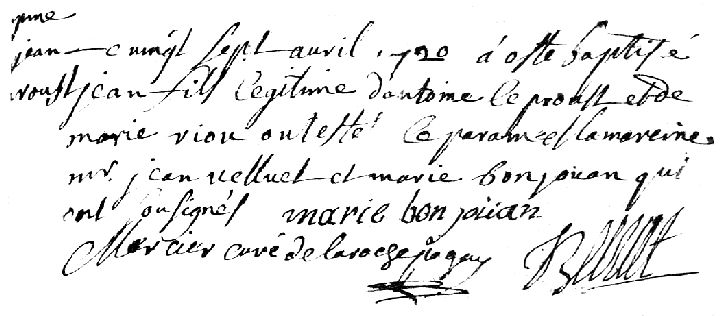 jean le vingt sept avril 1720 a oste baptisé
proust jean fils legitime dantoine le proust et de
marie riou ont esté le parain et la mareine
mr. jean velluet et marie bonjouan qui
ont sousignés marie bonjouan
Mercier curé de laroche pogay